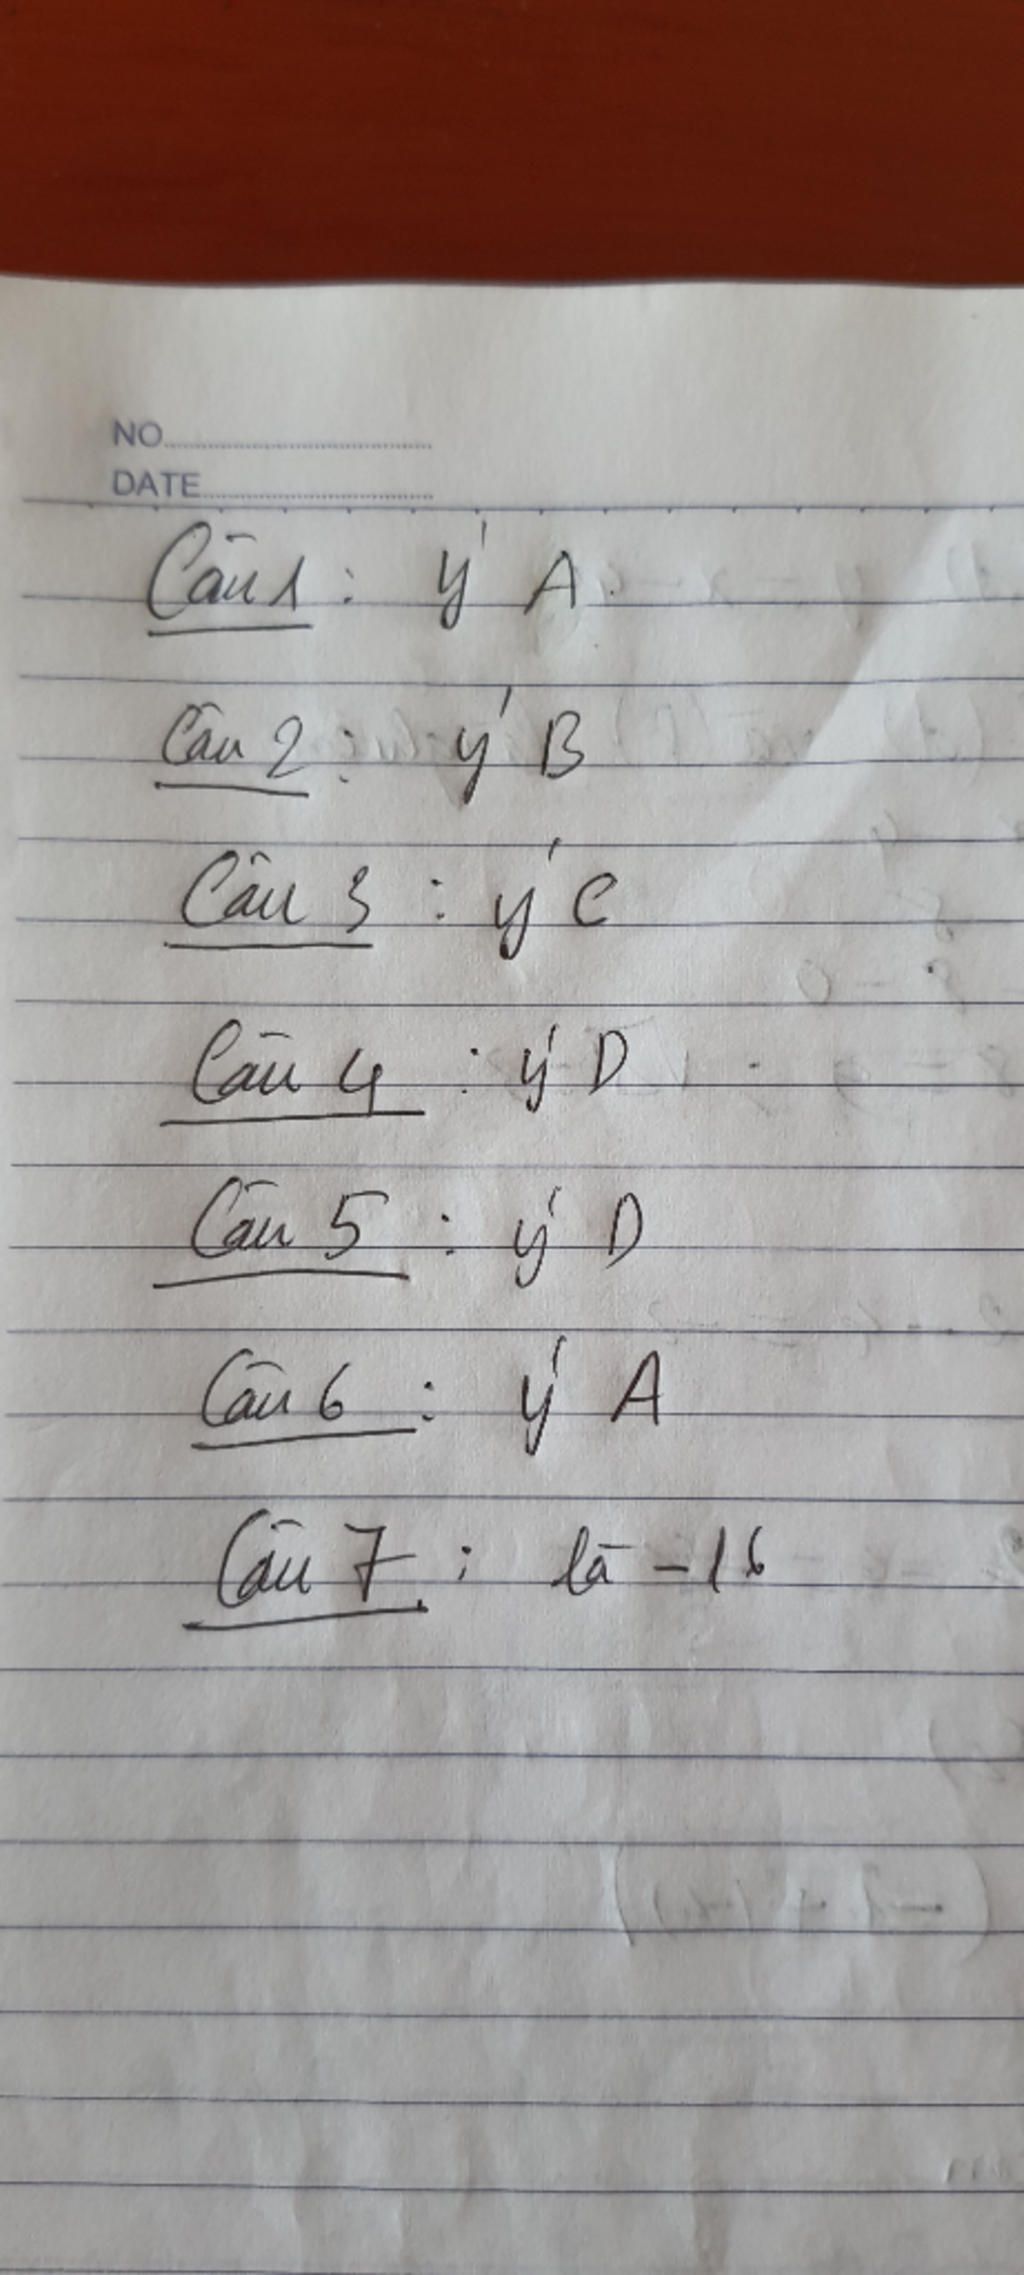 NO
DATE
Câu 1 : ý A.
Câu 2 : ý B
Câu 3 : ý C
Câu 4 : ý D
Câu 5 : ý D
Câu 6 : ý A
Câu 7 : là -16